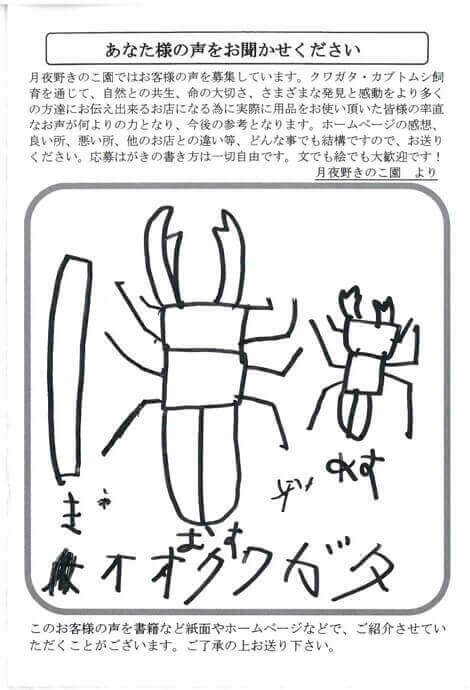 あなた様の声をお聞かせください
月夜野きのこ園ではお客様の声を募集しています。クワガタ・カブトムシ飼
育を通じて、自然との共生、命の大切さ、さまざまな発見と感動をより多く
の方達にお伝え出来るお店になる為に実際に用品をお使い頂いた皆様の率直
なお声が何よりの力となり、今後の参考となります。ホームページの感想、
良い所、悪い所、他のお店との違い等、どんな事でも結構ですので、お送り
ください。応募はがきの書き方は一切自由です。文でも絵でも大歓迎です！
月夜野きのこ園　より
めす
おす
オオクワガタ
このお客様の声を書籍など紙面やホームページなどで、ご紹介させてい
ただくことがございます。ご了承の上お送り下さい。